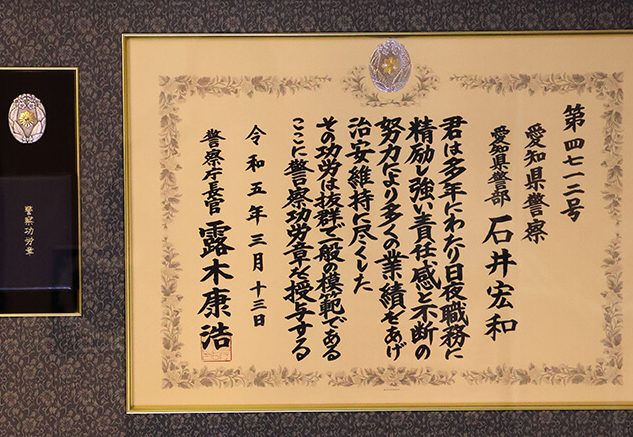 第四七一二号
愛知県警察
愛知県警部 石井宏和
君は多年にわたり日夜職務に
精励し強い責任感と不断の
努力により多くの業績をあげ
治安維持に尽くした
その功労は抜群で一般の模範である
ここに警察功労章を授与する
令和五年三月十三日
警察庁長官 露木康浩
警察功労章